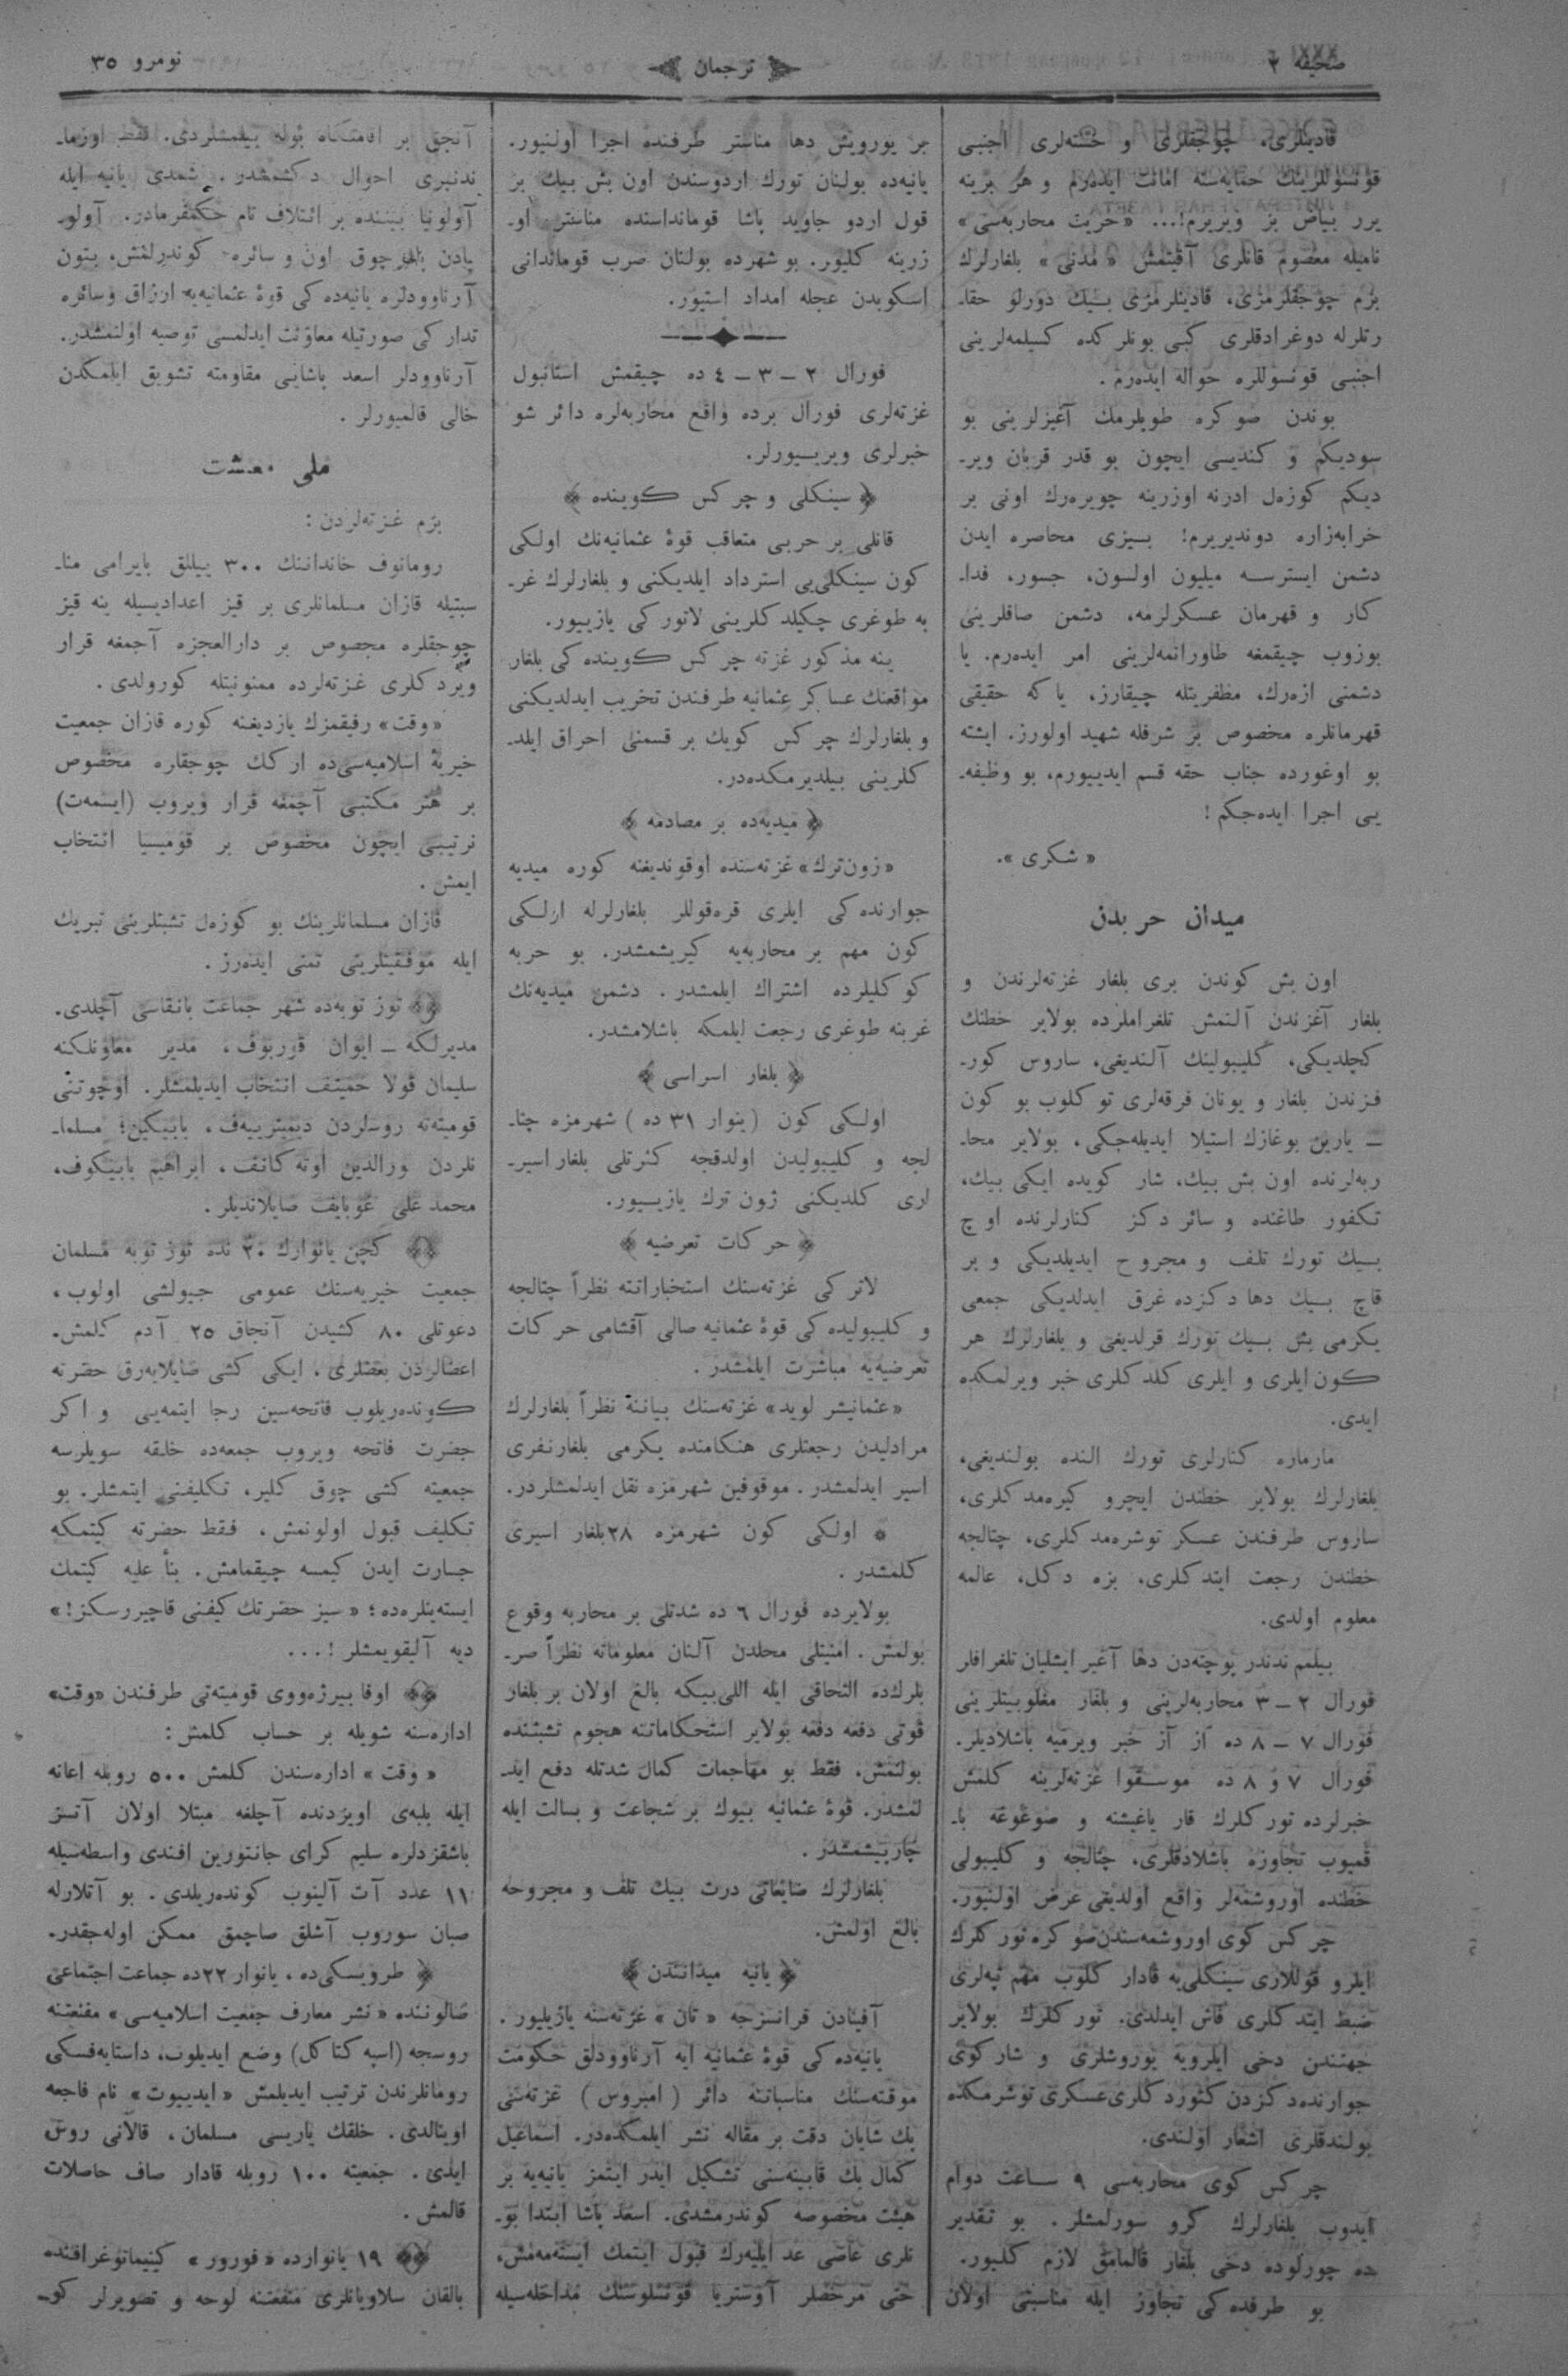 صحیفه ٢
ترجمان
نومرو ٣٥
قادینلری، چوجقلری و خسته‌لری اجنبی
قونسوللرینك حمایه‌سنه امانت ایده‌رم و هر برینه
یرر بیاض بز ویریرم!... «حریت محاربه‌سی»
نامیله معصوم قانلری آقیتمش «مدنی» بلغارلرك
بزم چوجقلرمزی، قادینلرمزی بـیك دورلو حقا-
رتلرله دوغرادقلری کبی بونلرکده کسیلمه‌لرینی
اجنبی قونسوللره حواله ایده‌رم.
بوندن صوکره طوپلرمك آغیزلرینی بو
سودیکم و کندیسی ایچون بو قدر قربان ویر-
دیکم کوزه‌ل ادرنه اوزرینه چویره‌رك اونی بر
خرابه‌زاره دوندیریرم! بـیزی محاصره ایدن
دشمن ایسترسـه میلیون اولسون، جسور، فدا-
کار و قهرمان عسکرلرمه، دشمن صاقلرینی
یوزوب چیقمغه طاورانمه‌لرینی امر ایده‌رم. یا
دشمنی ازه‌رك، مظفریتله چیقارز، یاکه حقیقی
قهرمانلره مخصوص بر شرفله شهید اولورز. ایشته
بو اوغورده جناب حقه قسم ایدییورم، بو وظیفه-
یی اجرا ایده‌جکم!
«شکری».
میدان حربدن
اون بش کوندن بری بلغار غزته‌لرندن و
بلغار آغزندن آلنمش تلغراملرده بولایر خطنك
کچلدیکی، کلیبولینك آلندیغی، ساروس کور-
فزندن بلغار و یونان فرقه‌لری توکلوب بو کون
ـ یارین بوغازك استیلا ایدیله‌جکی، بولایر محا-
ربه‌لرنده اون بش بیك، شار کویده ایکی بیك،
تکفور طاغنده و سائر دکز کنارلرنده اوچ
بـیك تورك تلف و مجروح ایدیلدیکی و بر
قاچ بـیك دها دکزده غرق ایدلدیکی جمعی
یکرمی بش بـیك تورك قرلدیغی و بلغارلرك هر
کون ایلری و ایلری کلدکلری خبر ویرلمکده
ایدی.
مارماره کنارلری تورك النده بولندیغی،
بلغارلرك بولایر خطندن ایچرو کیره‌مدکلری،
ساروس طرفندن عسکر توشره‌مدکلری، چتالجه
خطندن رجعت ایتدکلری، بزه دکل، عالمه
معلوم اولدی.
بیلمم ندندر پوچته‌دن دها آغیر ایشلیان تلغرافلر
فورال ٢ ـ ٣ محاربه‌لرینی و بلغار مغلوبیتلرینی
فورال ٧ ـ ٨ ده آز آز خبر ویرمیه باشلادیلر.
فورال ٧ و ٨ ده موسـقوا غزته‌لرینه کلمش
خبرلرده تورکلرك قار یاغیشنه و صوغوغه با-
قمیوب تجاوزه باشلادقلری، چتالجه و کلیبولی
خطنده اوروشمه‌لر واقع اولدیغی عرض اولنیور.
چرکس کوی اوروشمه‌سندن صوکره تورکلرك
ایلرو قوللاری سینکلی‌یه قادار کلوب مهم تپه‌لری
ضبط ایتدکلری فاش ایدلدی. تورکلرك بولایر
جهتندن دخی ایلرویه یوروشلری و شارکوی
جوارنده دکزدن کتوردکلری عسکری توشرمکده
بولندقلری اشعار اولندی.
چرکس کوی محاربه‌سی ٩ ساعت دوام
ایدوب بلغارلرك کرو سورلمشلر. بو تقدیر
ده چورلوده دخی بلغار قالمامق لازم کلیور.
بو طرفده‌کی تجاوز ایله مناسبتی اولان
بر یورویش دها مناستر طرفنده اجرا اولنیور.
یانیه‌ده بولنان تورك اردوسندن اون بش بیك بر
قول اردو جاوید پاشا قومانداسنده مناستر او-
زرینه کلیور. بو شهرده بولنان صرب قوماندانی
اسکوبدن عجله امداد استیور.
فورال ٢ ـ ٣ ـ ٤ ده چیقمش استانبول
غزته‌لری فورال برده واقع محاربه‌لره دائر شو
خبرلری ویریـیورلر.
﴿ سینکلی و چرکس کوینده ﴾
قانلی بر حربی متعاقب قوۀ عثمانیه‌نك اولکی
کون سینکلی‌یی استرداد ایلدیکنی و بلغارلرك غر-
به طوغری چکیلدکلرینی لاتورکی یازییور.
ینه مذکور غزته چرکس کوینده‌کی بلغار
مواقعنك عساکر عثمانیه طرفندن تخریب ایدلدیکنی
و بلغارلرك چرکس کوینك بر قسمنی احراق ایلد-
کلرینی بیلدیرمکده‌در.
﴿ میدیه‌ده بر مصادمه ﴾
«ژون‌ترك» غزته‌سنده اوقوندیغنه کوره میدیه
جوارنده‌کی ایلری قره‌قوللر بلغارلرله اولکی
کون مهم بر محاربه‌یه کیریشمشدر. بو حربه
کوکلیلرده اشتراك ایلمشدر. دشمن میدیه‌نك
غربنه طوغری رجعت ایلمکه باشلامشدر.
﴿ بلغار اسراسی ﴾
اولکی کون (ینوار ٣١ ده) شهرمزه چتا-
لجه و کلیبولیدن اولدقجه کثرتلی بلغار اسیر-
لری کلدیکنی ژون ترك یازییور.
﴿ حرکات تعرضیه ﴾
لاترکی غزته‌سنك استخباراتنه نظراً چتالجه
و کلیبولیده‌کی قوۀ عثمانیه صالی آقشامی حرکات
تعرضیه‌یه مباشرت ایلمشدر.
«عثمانیشر لوید» غزته‌سنك بیاننه نظراً بلغارلرك
مرادلیدن رجعتلری هنکامنده یکرمی بلغار نفری
اسیر ایدلمشدر. موقوفین شهرمزه نقل ایدلمشلردر.
* اولکی کون شهرمزه ٢٨ بلغار اسیری
کلمشدر.
بولایرده فورال ٦ ده شدتلی بر محاربه وقوع
بولمش. امنیتلی محلدن آلنان معلوماته نظراً صر-
بلرك‌ده التحاقی ایله اللی‌بیکه بالغ اولان بر بلغار
قوتی دفعه دفعه بولایر استحکاماتنه هجوم تشبثنده
بولنمش، فقط بو مهاجمات کمال شدتله دفع اید-
لمشدر. قوۀ عثمانیه بیوك بر شجاعت و بسالت ایله
چارپیشمشدر.
بلغارلرك ضایعاتی درت بیك تلف و مجروحه
بالغ اولمش.
﴿ یانیه میداننن ﴾
آفینادن فرانسزجه «تان» غزته‌سنه یازیلیور.
یانیه‌ده‌کی قوۀ عثمانیه ایه آرناوودلق حکومت
موقته‌سنك مناسباتنه دائر (امپروس) غزته‌سی
پك شایان دقت بر مقاله نشر ایلمکده‌در. اسماعیل
کمال بك قابینه‌سنی تشکیل ایدر ایتمز یانیه‌یه بر
هیئت مخصوصه کوندرمشدی. اسعد پاشا ابتدا بو-
نلری عاصی عد ایلیه‌رك قبول ایتمك ایسته‌مه‌مش،
حتی مرخصلر آوستریا قونسلوسنك مداخله‌سیله
آنجق بر اقامتکاه بوله بیلمشلردی. فقط اوزما-
ندنبری احوال دکشمشدر. شمدی یانیه ایله
آولونیا بیننده بر ائتلاف تام حکمفرمادر. آولو-
یادن چوق اون و سائره کوندرلمش، بتون
آرناوودلره یانیه‌ده‌کی قوۀ عثمانیه‌یه ارزاق وسائره
تدارکی صورتیله معاونت ایدلمسی توصیه اولنمشدر.
آرناوودلر اسعد پاشانی مقاومته تشویق ایلمکدن
خالی قالمیورلر.
ملی معشت
بزم غزته‌لردن:
رومانوف خانداننك ٣٠٠ ییللق بایرامی منا-
سبتیله قازان مسلمانلری بر قیز اعدادیسیله ینه قیز
چوجقلره مخصوص بر دارالعجزه آچمغه قرار
ویردکلری غزته‌لرده ممنونیتله کورولدی.
«وقت» رفیقمزك یازدیغنه کوره قازان جمعیت
خیریۀ اسلامیه‌سی‌ده ارکك چوجقلره مخصوص
بر هنر مکتبی آچمغه قرار ویروب (ایسمه‌ت)
ترتیبی ایچون مخصوص بر قومیسیا انتخاب
ایمش.
قازان مسلمانلرینك بو کوزه‌ل تشبثلرینی تبریك
ایله موفقیتلرینی تمنی ایده‌رز.
توز توبه‌ده شهر جماعت بانقاسی آچلدی.
مدیرلکه ـ ایوان قوربوف، مدیر معاونلکنه
سلیمان قولا حمیتف انتخاب ایدیلمشلر. اوچوتنی
قومیته‌ته روسلردن دیمیترییه‌ف، بابیکین؛ مسلما-
نلردن نورالدین اوته‌کانف، ابراهیم بابیکوف،
محمد علی عوبایف صایلاندیلر.
کچن یانوارك ٢٠ نده توز توبه مسلمان
جمعیت خیریه‌سنك عمومی جیولشی اولوب،
دعوتلی ٨٠ کشیدن آنجاق ٢٥ آدم کلمش.
اعضالردن بعضلری، ایکی کشی صایلایه‌رق حضرته
کونده‌ریلوب فاتحه‌سین رجا ایتمه‌یی و اکر
حضرت فاتحه ویروب جمعه‌ده خلقه سویلرسه
جمعیته کشی چوق کلیر، تکلیفنی ایتمشلر. بو
تکلیف قبول اولونمش، فقط حضرته کیتمکه
جسارت ایدن کیمسه چیقمامش. بنأ علیه کیتمك
ایسته‌ینلره‌ده؛ «سیز حضرتك کیفنی قاچیررسکز!»
دیه آلیقویمشلر!...
اوفا بیرژه‌ووی قومیته‌تی طرفندن «وقت»
اداره‌سنه شویله بر حساب کلمش:
«وقت» اداره‌سندن کلمش ٥٠٠ روبله اعانه
ایله بلبه‌ی اویزدنده آچلغه مبتلا اولان آتسز
باشقزدلره سلیم کرای جانتورین افندی واسطه‌سیله
١١ عدد آت آلینوب کونده‌ریلدی. بو آتلارله
صبان سوروب آشلق صاچمق ممکن اوله‌جقدر.
طرویسکی‌ده، یانوار ٢٢ده جماعت اجتماعی
صالوننده «نشر معارف جمعیت اسلامیه‌سی» منفعتنه
روسجه (اسپه‌کتاکل) وضع ایدیلوب، داستایه‌فسکی
رومانلرندن ترتیب ایدیلمش «ایدییوت» نام فاجعه
اوینالدی. خلقك یاریسی مسلمان، قالانی روس
ایدی. جمعیته ١٠٠ روبله قادار صاف حاصلات
قالمش.
١٩ یانوارده «فورور» کنیماتوغرافنده
بالقان سلاویانلری منفعتنه لوحه و تصویرلر کو-